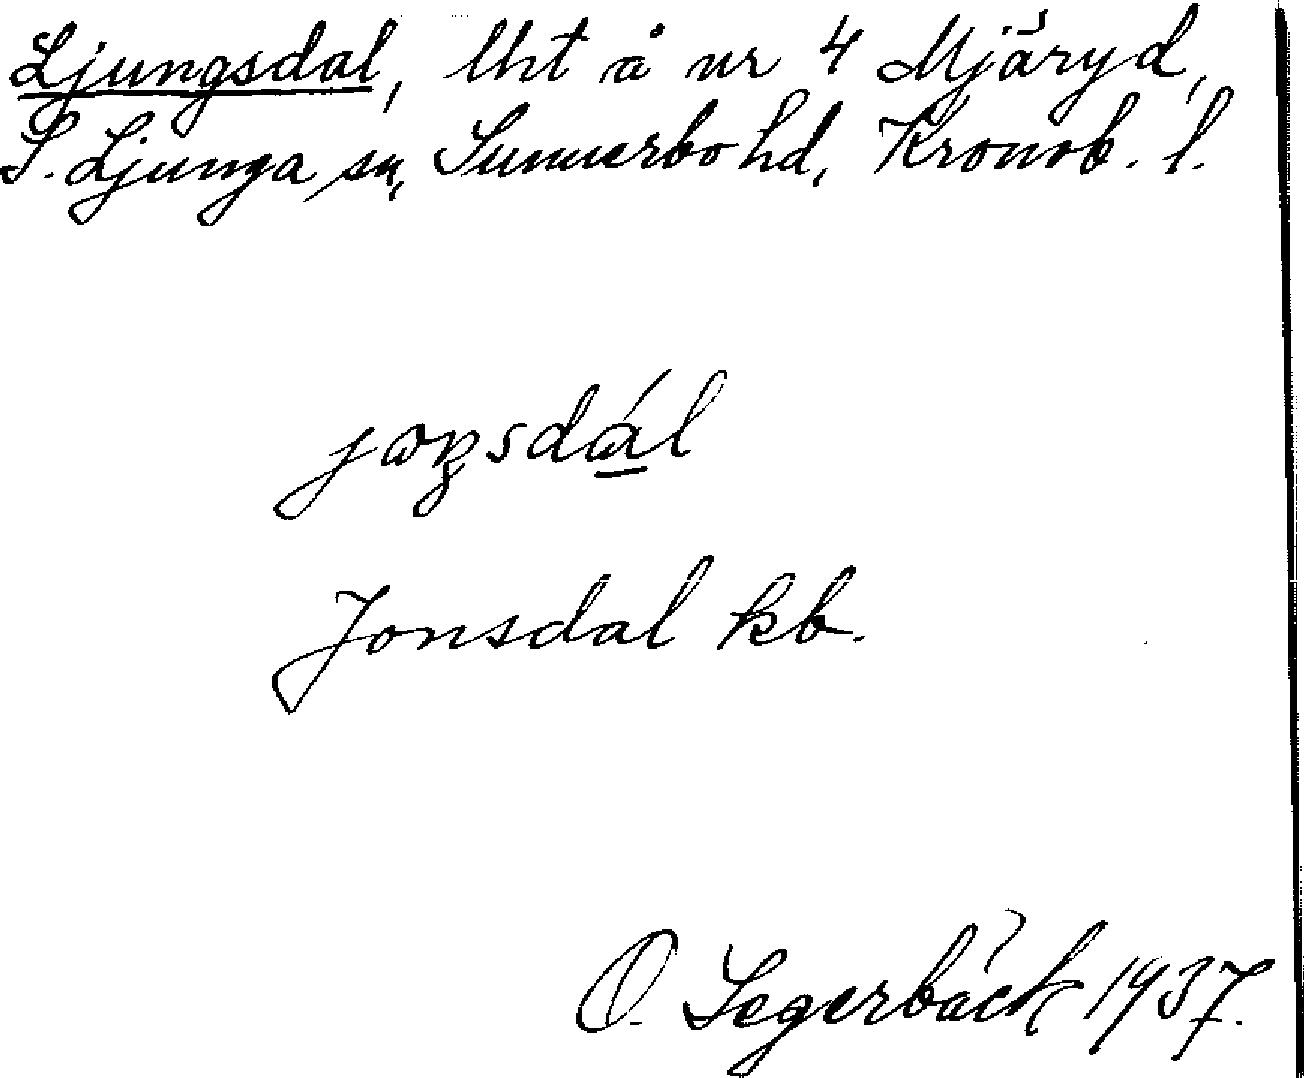 Ljungsdal, lht å nr 4 Mjäryd,
S. Ljunga sn, Sunnerbo hd, Kronob. l.
Jonsdal kb.
O. Segerbäck 1937.